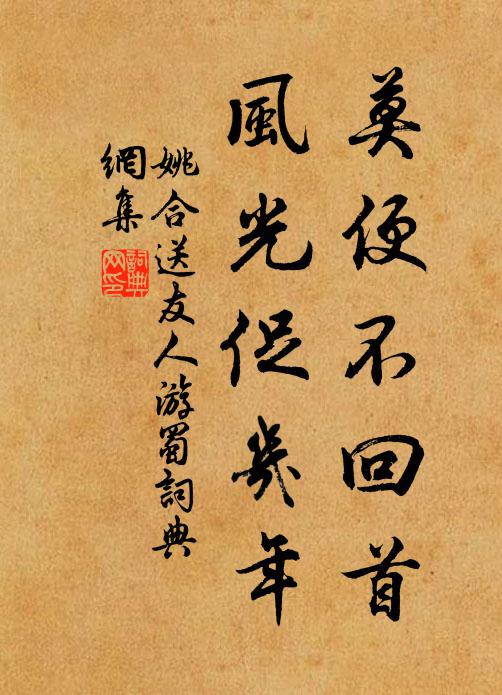 莫便不回首
風光促幾年
姚合送友人游蜀詞典
網集
詞典
网印